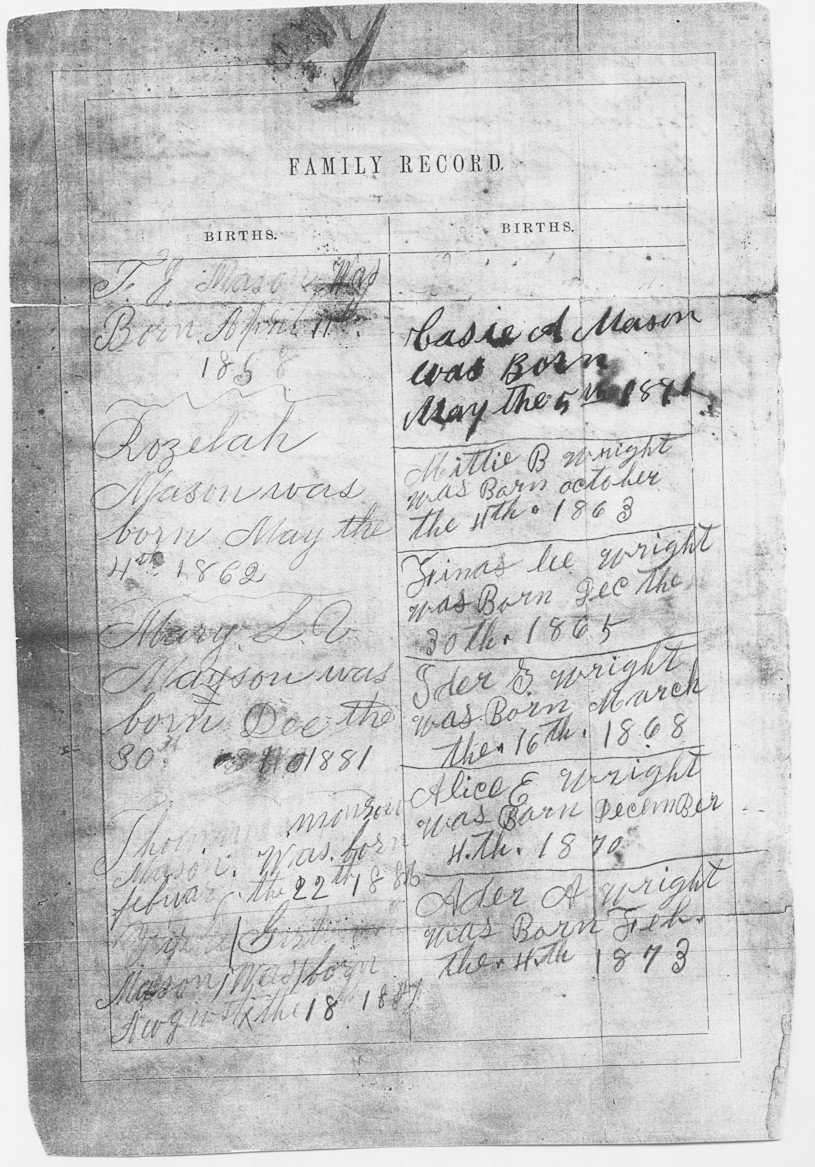 FAMILY RECORD.
BIRTHS.
T. J. Mason Was
Born April 11th.
1858
Rozelah
Mason was
born May the
4th 1862
Mary L. V
Mayson was
born Dec the
30th 1881
Thomas
Mason. Was born
febuary the 22th 1886
Mason Was born
the 18 18
BIRTHS.
Casie A Mason
was Born
May the 5th
Mittie B Wright
was Born october
the 4th. 1863
lee Wright
was Born Dec the
30th. 1865
Ider E. Wright
was Born March
the. 16th. 1868
Alice E Wright
was Born DecemBer
4.th. 1870
Ader A Wright
was Born Feb.
the. 4.th 1873